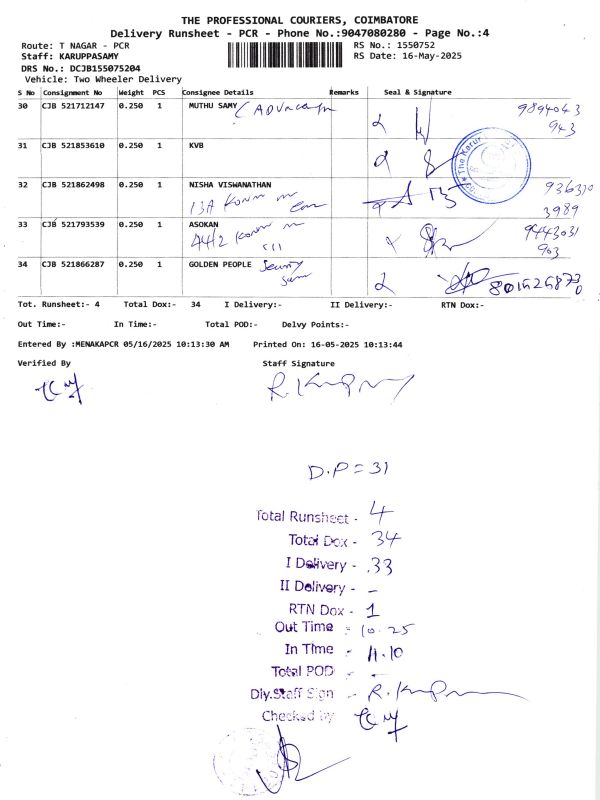 THE PROFESSIONAL COURIERS, COIMBATORE
Delivery Runsheet - PCR - Phone No.:9047080280 - Page No.:4
Route: T NAGAR - PCR
RS No.: 1550752
Staff: KARUPPASAMY
RS Date: 16-May-2025
DRS No.: DCJB155075204
Vehicle: Two Wheeler Delivery
S No Consignment No Weight PCS Consignee Details Remarks Seal & Signature
30 CJB 521712147 0.250 1 MUTHU SAMY 9894043
943
31 CJB 521853610 0.250 1 KVB
The Karur
32 CJB 521862498 0.250 1 NISHA VISWANATHAN 936310
13A 3989
33 CJB 521793539 0.250 1 ASOKAN 9443031
44/2 903
34 CJB 521866287 0.250 1 GOLDEN PEOPLE
Tot. Runsheet:- 4 Total Dox:- 34 I Delivery:- II Delivery:- RTN Dox:-
Out Time:- In Time:- Total POD:- Delvy Points:-
Entered By :MENAKAPCR 05/16/2025 10:13:30 AM Printed On: 16-05-2025 10:13:44
Verified By Staff Signature
D.P = 31
Total Runsheet - 4
Total Dox - 34
I Delivery - 33
II Delivery - -
RTN Dox - 1
Out Time : 10.25
In Time - 11.10
Total POD - -
Dly.Staff Sign -
Checked by